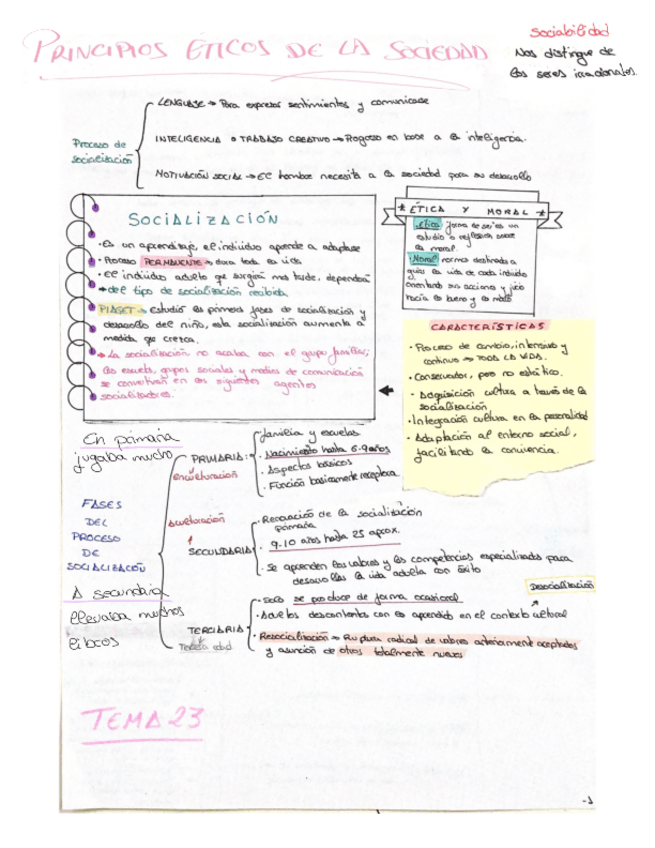 Sociabilidad
PRINCIPIOS ÉTICOS DE LA SOCIEDAD
Nos distingue de
los seres irracionales.
LENGUAJE → Para expresar sentimientos y comunicarse
Proceso de
socialización
INTELIGENCIA o TRABAJO CREATIVO → Progreso en base a la inteligencia.
MOTIVACIÓN SOCIAL → El hombre necesita a la sociedad para su desarrollo
SOCIALIZACIÓN
• Es un aprendizaje, el individuo aprende a adaptarse
• Proceso PERMANENTE → dura toda la vida
• El individuo adulto que surgirá mas tarde, dependerá
→ del tipo de socialización recibida.
PIAGET → Estudió las primeras fases de socialización y
desarrollo del niño, esta socialización aumenta a
medida que crezca.
→ La socialización no acaba con el grupo familiar,
las escuela, grupos sociales y medios de comunicación
se convertirán en los siguientes agentes
socializadores.
* ÉTICA Y MORAL *
Ética: forma de ser es un
estudio o reflexión sobre
la moral.
Moral: norma destinada a
guiar la vida de cada individuo
orientando sus acciones y juicio
hacia lo bueno y lo malo
CARACTERÍSTICAS
• Proceso de cambio, intensivo y
continuo → TODA LA VIDA.
• Conservador, pero no estático.
• Adquisición cultura a través de la
socialización
• Integración cultura en la personalidad
• Adaptación al entorno social,
facilitando la convivencia.
En primaria
jugaba mucho
FASES
DEL
PROCESO
DE
SOCIALIZACIÓN
A secundaria
llevaba muchos
libros
PRIMARIA:
enculturación
• familia y escuelas
• Nacimiento hasta 6-9 años
• Aspectos básicos
• Función basicamente receptora
Aculturación
SECUNDARIA
• Renovación de la socialización
primaria
• 9-10 años hasta 25 aprox.
• Se aprenden los valores y las competencias especializadas para
desarrollar la vida adulta con éxito
Desocialización
TERCIARIA
Tercera edad.
• Solo se produce de forma ocasional
• Adultos descontentos con lo aprendido en el contexto cultural
• Resocialización → Ruptura radical de valores anteriormente aceptados
y asunción de otros totalmente nuevos
TEMA 23
-1